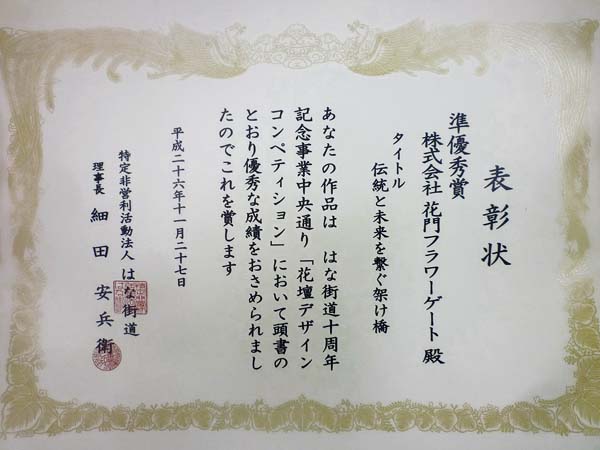 表彰状
準優秀賞
株式会社 花門フラワーゲート 殿
タイトル
伝統と未来を繋ぐ架け橋
あなたの作品は はな街道十周年
記念事業中央通り「花壇デザイン
コンペティション」において頭書の
とおり優秀な成績をおさめられまし
たのでこれを賞します
平成二十六年十一月二十七日
特定非営利活動法人 はな街道
理事長 細田安兵衛